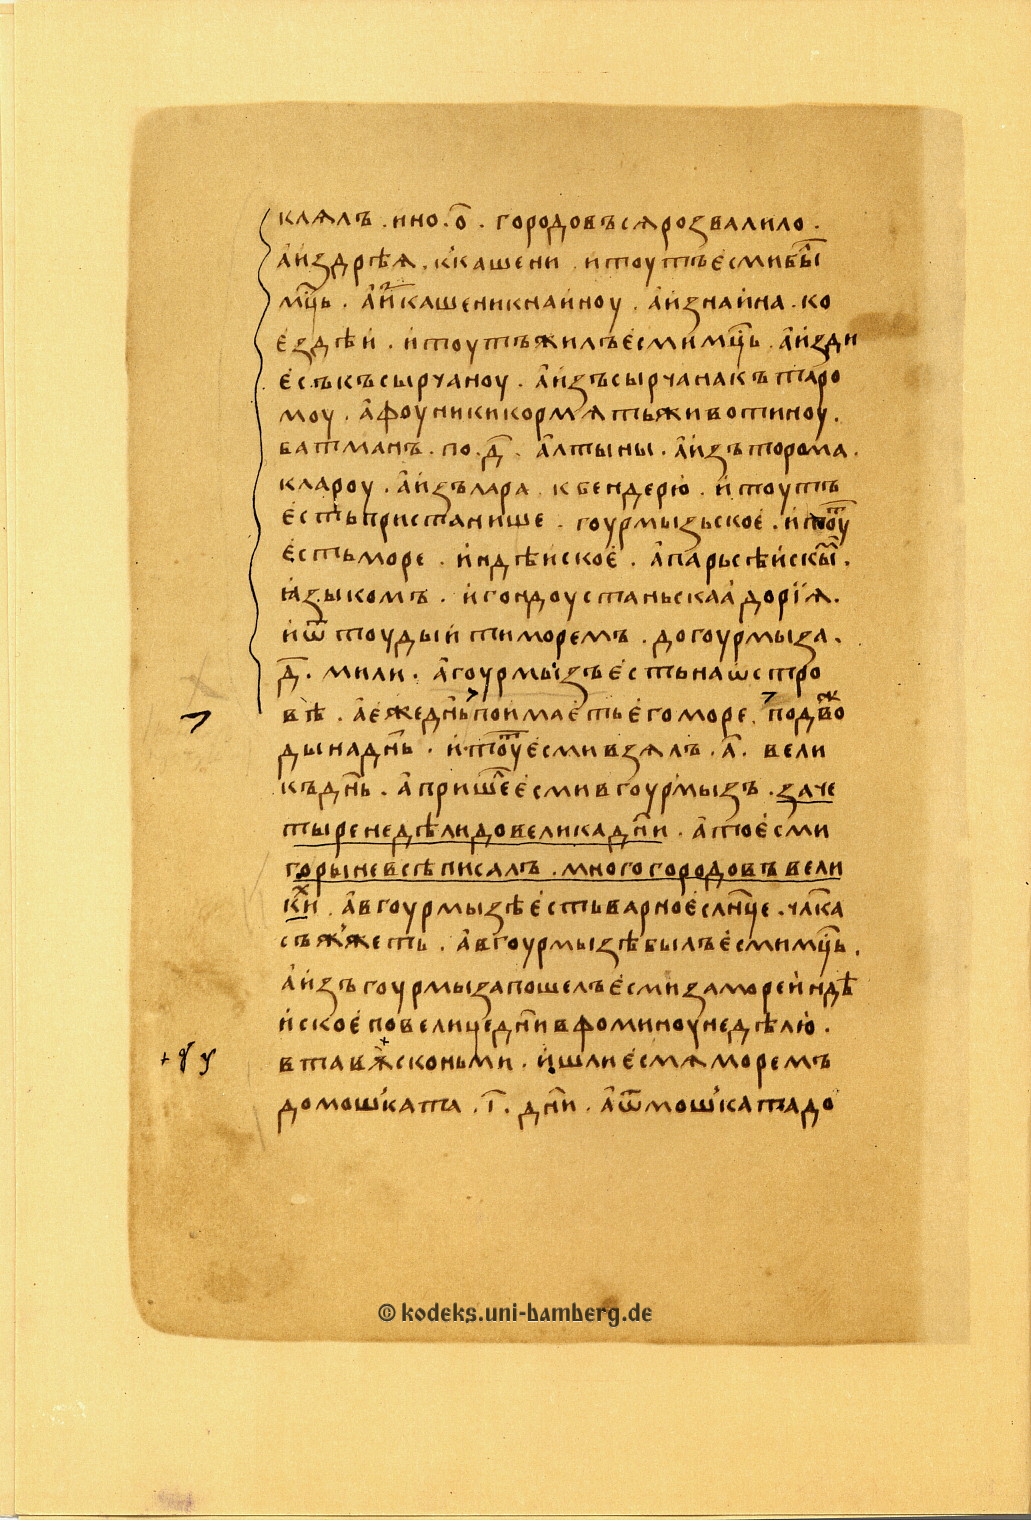 клѧлъ . ино . о҃ . городовъ сѧ розвалило .
а҆ и҆з дрѣѧ . к кашени . и҆ тоутъ є҆сми бы̑
мц҃ь . а҆ и҆с кашени к наиноу . а҆ и҆з наина . ко
є҆здѣи . и҆ тоутъ жилъ є҆сми мц҃ь . а҆ и҆з ди
є҆съ къ сырчаноу . а҆ и҆зъ сырчана къ таро
моу . а҆ фоуники кормѧть животиноу .
батманъ . по . д҃ . а҆лтыны . а҆ и҆зъ торома .
к лароу . а҆ и҆зъ лара . к бендерю̀ . и҆ тоутъ
є҆сть пристанише . гоурмызьскоє҆ . и҆ тоу т
є҆сть море . и҆ндѣискоє҆ . а҆ парьсѣискы м .
ꙗ҆зыкомъ . и҆ гондоустаньскаа҆ дорїѧ .
и҆ ѿ тоуды и҆ти моремъ . до гоурмыза .
д҃ . мили . а҆ гоурмызъ є҆сть на ѡ҆стро
вѣ . а҆ є҆жедн҃ь поимаєть є҆го море . по дв҃ож
ды на дн҃ь . и҆ тоу т є҆сми взѧлъ . а҃ . вели
къ дн҃ь . а҆ прише л є҆сми в гоурмызъ . за че
тыре недѣли до велика дн҃и . а҆ то є҆сми
горы не всѣ писалъ . много городовъ вели
ки х . а҆ в гоурмызѣ є҆сть варноє҆ слн҃це . чл҃ка
съжжеть . а҆ в гоурмызѣ былъ є҆сми мц҃ь .
а҆ и҆зъ гоурмыза пошелъ є҆сми за море и҆ндѣ
и҆скоє҆ по велице дн҃и в фоминоу недѣлю̀ .
в тавѧ с коньми . и҆ шли є҆смѧ моремъ
до мошката . і҃ . дн҃и . а҆ ѿ мошката до
© kodeks.uni-bamberg.de